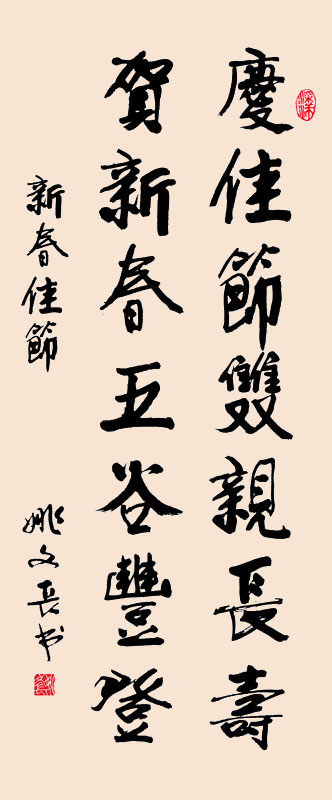 慶佳節雙親長壽
賀新春五谷豐登
新春佳節
姚文長书